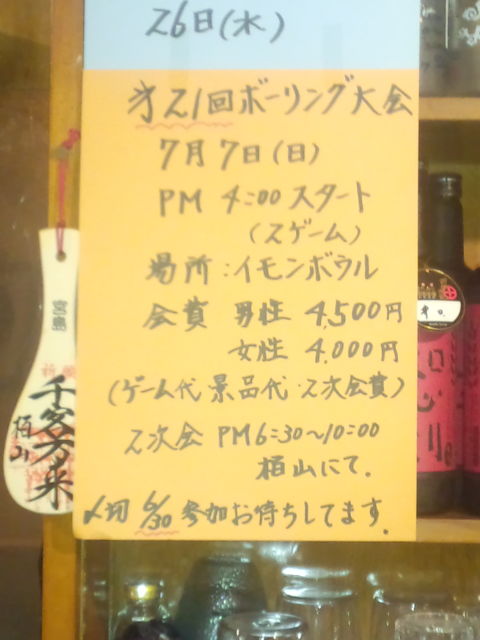 26日(水)
才21回ボーリング大会
7月7日(日)
PM 4:00 スタート
(2ゲーム)
場所:イモンボウル
会費 男性 4,500円
女性 4,000円
(ゲーム代・景品代・2次会費)
2次会 PM6:30〜10:00
栢山にて.
〆切 6/30 参加お待ちしてます.
宮島
千客万来
栢山